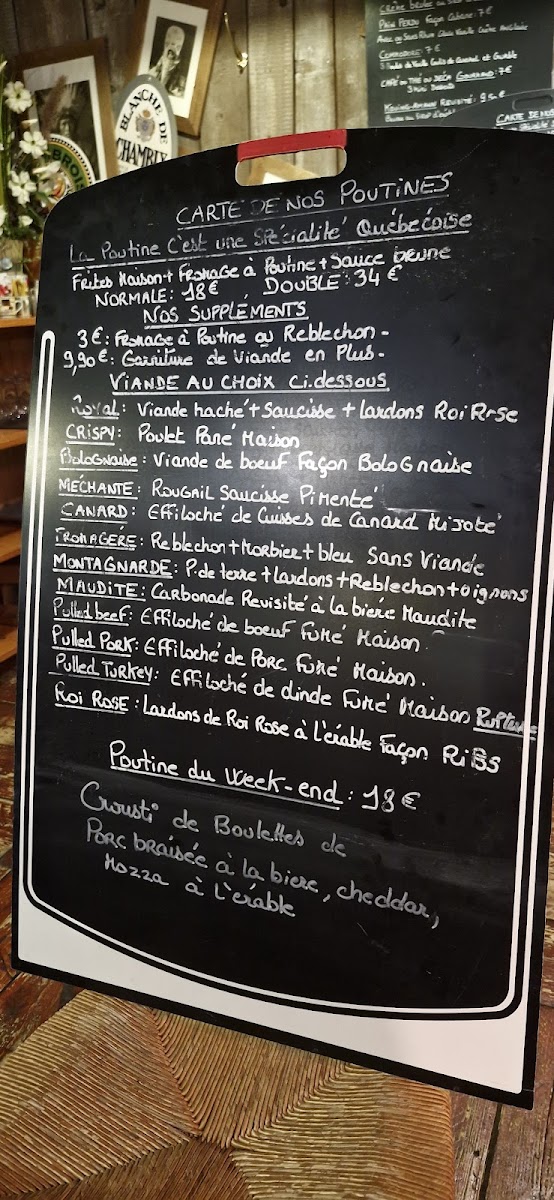 Pain Perdu Façon Cabane: 7€
7€
CAFÉ OU THÉ OU DÉCA GOURMAND: 7€
CARTE DE NOS
BLANCHE DE
CHAMBLY
CARTE DE NOS POUTINES
La Poutine C'est une Spécialité Québécoise
Frites Maison + Fromage à Poutine + Sauce brune
NORMALE: 18€ DOUBLE: 34€
NOS SUPPLÉMENTS
3€: Fromage à Poutine ou Reblechon -
9,90€: Garniture de Viande en Plus -
VIANDE AU CHOIX Ci.dessous
Royal: Viande haché + Saucisse + lardons Roi Rose
CRISPY: Poulet Pané Maison
Bolognaise: Viande de boeuf Façon Bolognaise
MÉCHANTE: Rougail Saucisse Pimenté
CANARD: Effiloché de Cuisses de Canard Mijoté
FROMAGÈRE: Reblechon + Morbier + bleu Sans Viande
MONTAGNARDE: P.de terre + lardons + Reblechon + oignons
MAUDITE: Carbonade Revisité à la bière Maudite
Pulled beef: Effiloché de boeuf Fumé Maison.
Pulled Pork: Effiloché de Porc Fumé Maison.
Pulled Turkey: Effiloché de dinde Fumé Maison Rupture
Roi Rose: Lardons de Roi Rose à l'érable Façon RiBS
Poutine du Week-end: 18€
Crousti de Boulettes de
Porc braisée à la bière, cheddar,
Mozza à l'érable